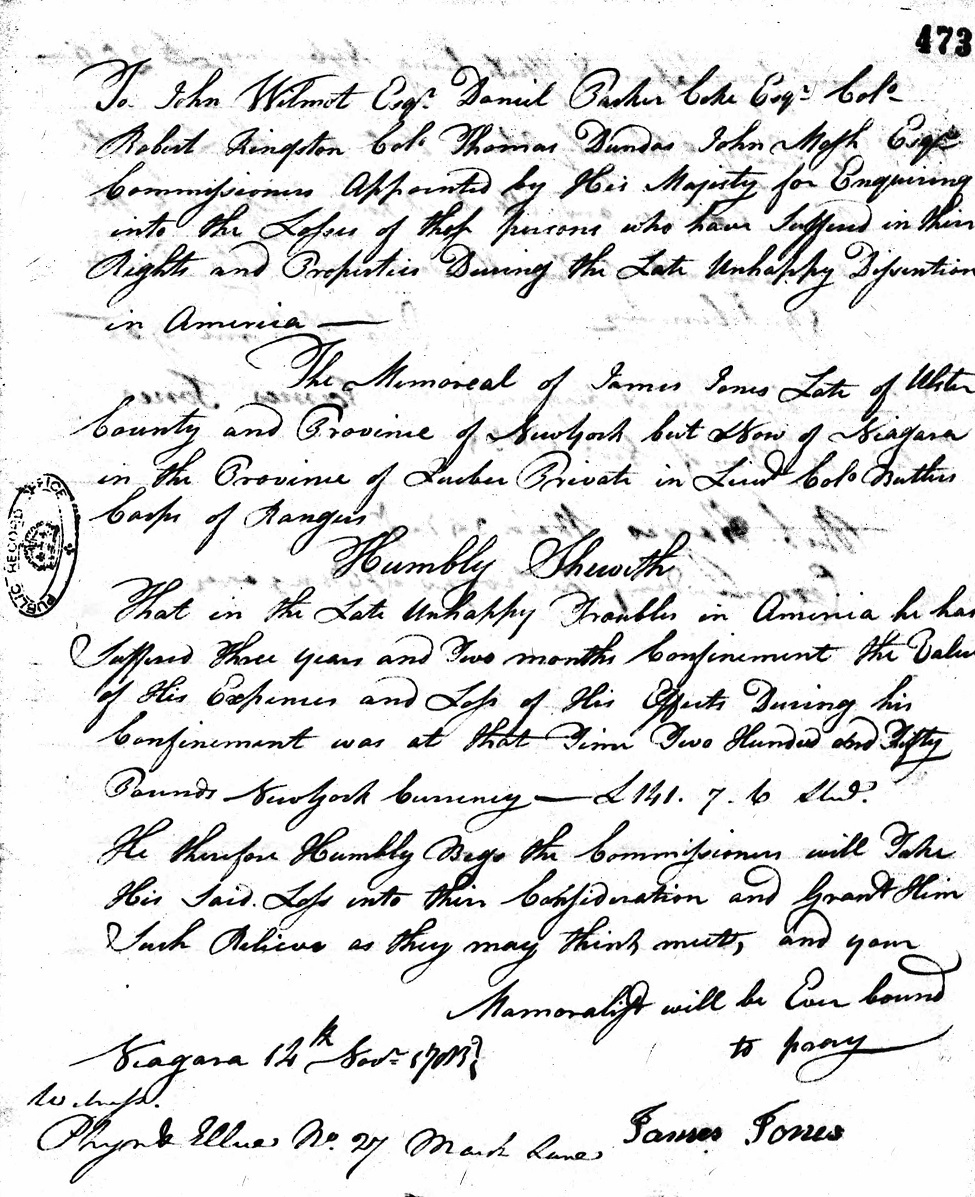 473
To John Wilmot Esqr. Daniel Parker Coke Esqr. Colo.
Robert Kingston Colo. Thomas Dundas John Mash Esqr.
Commissioners Appointed by His Majesty for Enquiring
into the Losses of thos persons who have Suffered in their
Rights and Properties During the Late Unhappy Dissention
in America —
The Memoreal of James Jones Late of Ulster
County and Province of New York but Now of Niagara
in the Province of Quebec Private in Lieut Colo Butlers
Corps of Rangers
Humbly Sheweth
That in the Late Unhappy Troubles in America he has
Suffered Three years and Two months Confinement the Value
of His Expences and Loss of His Effects During his
Confinement was at that Time Two Hundred and Fifty
Pounds New York Currency — £141. 7. 6
He therefore Humbly Begs the Commissioners will Take
His Said Loss into their Consideration and Grant Him
Such Relieve as they may think meet, and your
Mamoralist will be Ever bound
to pray
Niagara 14th Novr.
Witness.
Phyn & Ellice No. 27 Mark Lane James Jones
PUBLIC RECORD OFFICE